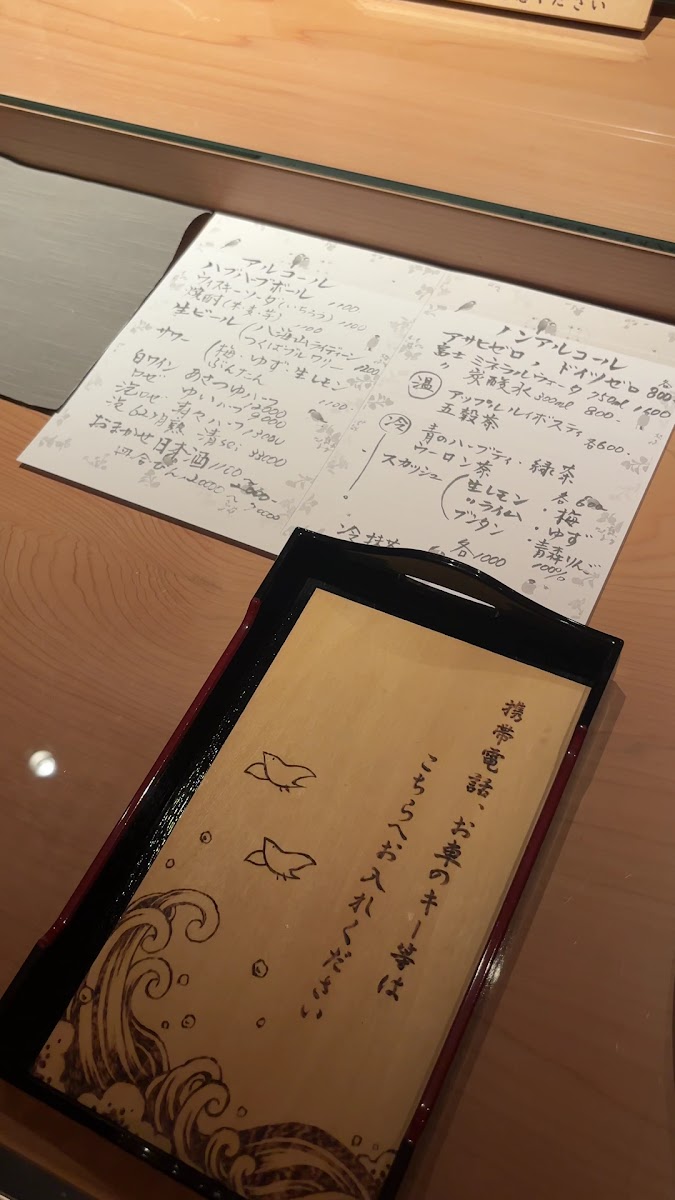 ださい
アルコール
ハブハブボール 1100
ウィスキーソーダ(いちろう) 1100
焼酎(米・麦・芋) 1100
生ビール(八海山ライディーン
つくばブルワリー 1200
サワー(梅・ゆず・生レモン
ぶんたん 1100
白ワイン あさつゆハーフ
ロゼ ゆいハーフ
泡ロゼ
泡 62ヶ月熟
おまかせ日本酒 1100
ノンアルコール
アサヒゼロ、ドイツゼロ 各800-
富士ミネラルウォータ 750ml 1500
〃 炭酸水 300ml 800-
温 アップルルイボスティ
五穀茶 各600-
冷 青のハーブティ・緑茶
ウーロン茶 各600
スカッシュ(生レモン・梅
〃ライム・ゆず
ブンタン・青森りんご
各1000 100%
冷抹茶
携帯電話、お車のキー等は
こちらへお入れください